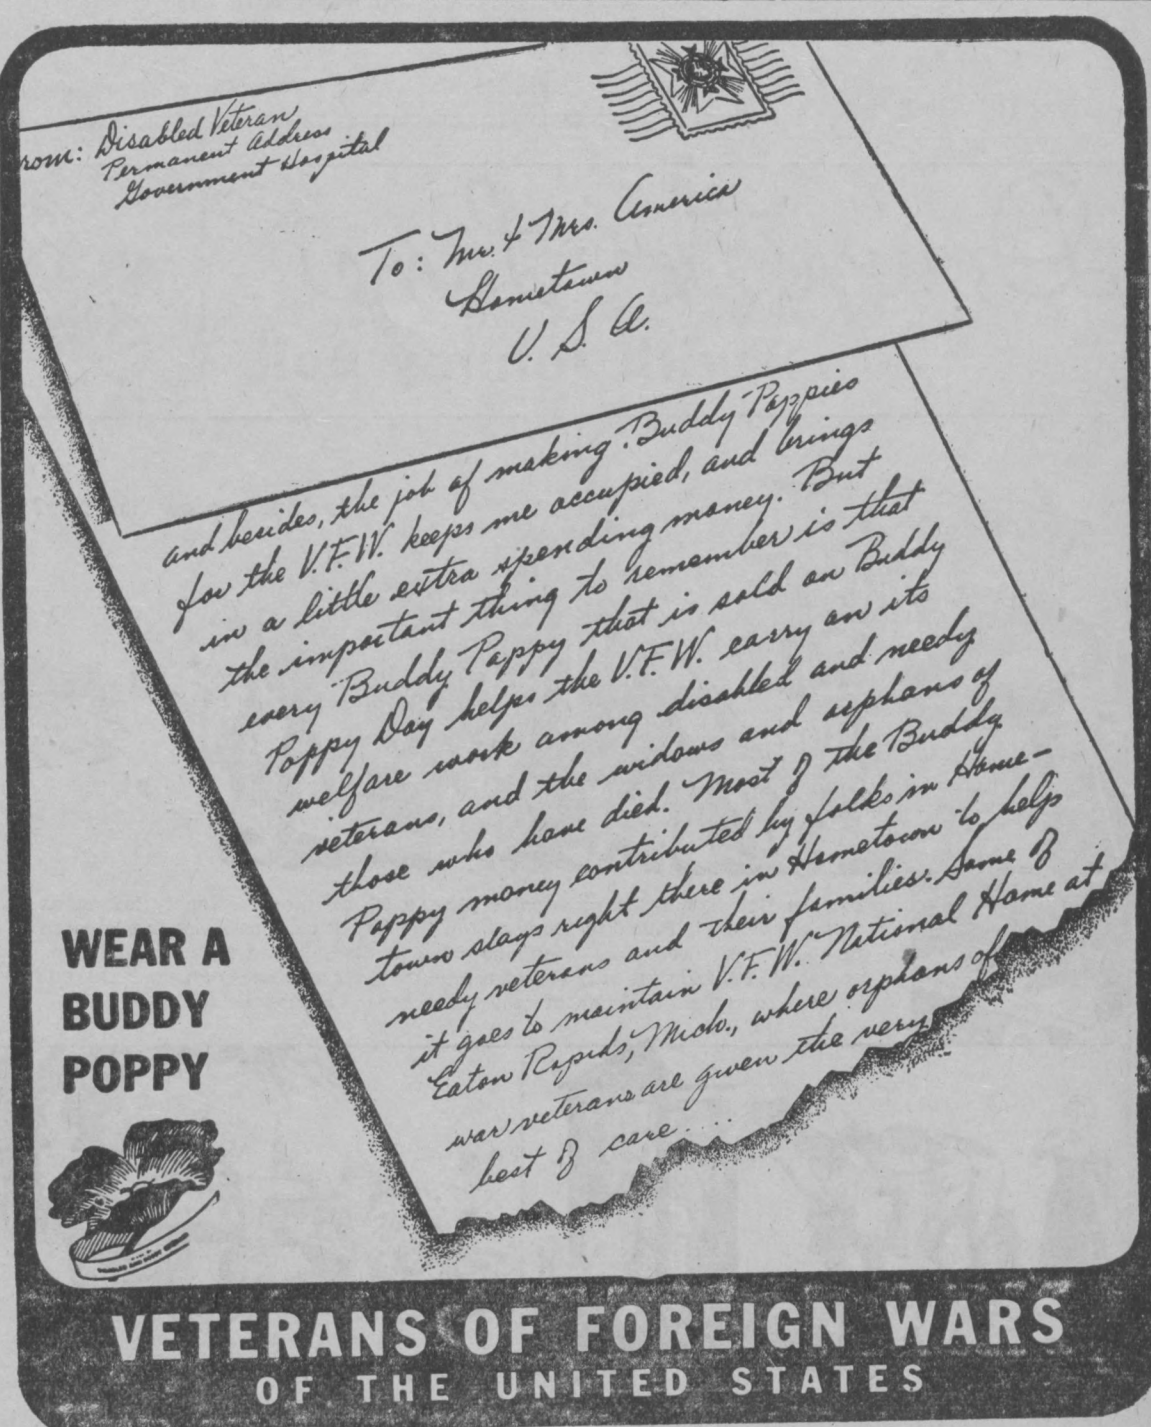 rom: Disabled Veteran
Permanent Address
Government Hospital
To: Mr. & Mrs. America
Hometown
U. S. A.
and besides, the job of making "Buddy" Poppies
for the V.F.W. keeps me occupied, and brings
in a little extra spending money. But
the important thing to remember is that
every "Buddy" Poppy that is sold on Buddy
Poppy Day helps the V.F.W. carry on its
welfare work among disabled and needy
veterans, and the widows and orphans of
those who have died. Most of the Buddy
Poppy money contributed by folks in Home-
town stays right there in Hometown to help
needy veterans and their families. Some of
it goes to maintain V.F.W. National Home at
Eaton Rapids, Mich., where orphans of
war veterans are given the very
best of care....
WEAR A
BUDDY
POPPY
VETERANS OF FOREIGN WARS
OF THE UNITED STATES